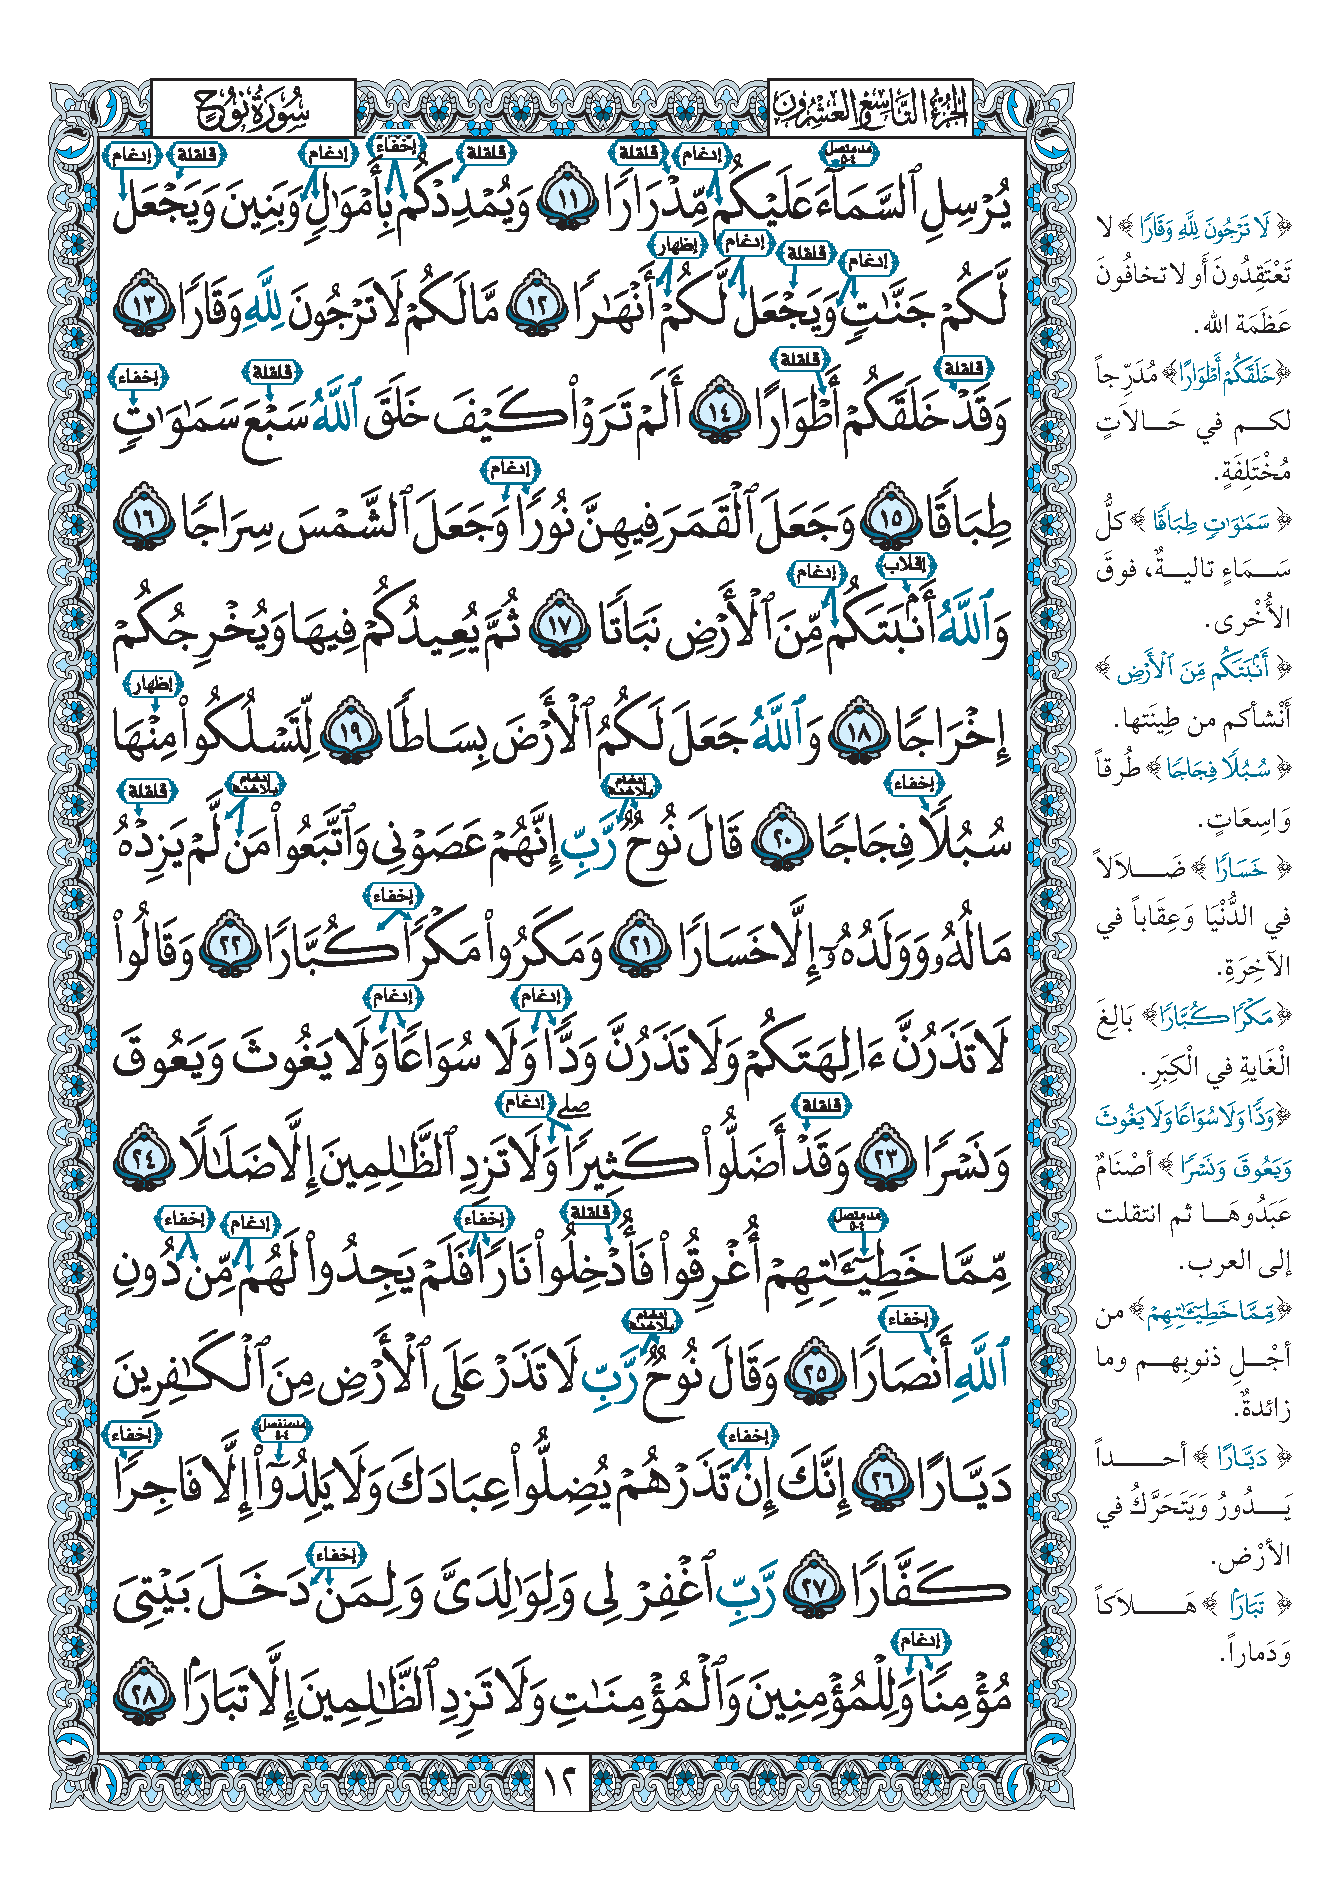 الجزء التاسع والعشرون
سورة نوح
يُرْسِلِ ٱلسَّمَآءَ عَلَيْكُم مِّدْرَارًا ١١ وَيُمْدِدْكُم بِأَمْوَٰلٍ وَبَنِينَ وَيَجْعَل
لَّكُمْ جَنَّٰتٍ وَيَجْعَل لَّكُمْ أَنْهَٰرًا ١٢ مَّا لَكُمْ لَا تَرْجُونَ لِلَّهِ وَقَارًا ١٣
وَقَدْ خَلَقَكُمْ أَطْوَارًا ١٤ أَلَمْ تَرَوْا۟ كَيْفَ خَلَقَ ٱللَّهُ سَبْعَ سَمَٰوَٰتٍ
طِبَاقًا ١٥ وَجَعَلَ ٱلْقَمَرَ فِيهِنَّ نُورًا وَجَعَلَ ٱلشَّمْسَ سِرَاجًا ١٦
وَٱللَّهُ أَنۢبَتَكُم مِّنَ ٱلْأَرْضِ نَبَاتًا ١٧ ثُمَّ يُعِيدُكُمْ فِيهَا وَيُخْرِجُكُمْ
إِخْرَاجًا ١٨ وَٱللَّهُ جَعَلَ لَكُمُ ٱلْأَرْضَ بِسَاطًا ١٩ لِّتَسْلُكُوا۟ مِنْهَا
سُبُلًا فِجَاجًا ٢٠ قَالَ نُوحٌ رَّبِّ إِنَّهُمْ عَصَوْنِى وَٱتَّبَعُوا۟ مَن لَّمْ يَزِدْهُ
مَالُهُۥ وَوَلَدُهُۥٓ إِلَّا خَسَارًا ٢١ وَمَكَرُوا۟ مَكْرًا كُبَّارًا ٢٢ وَقَالُوا۟
لَا تَذَرُنَّ ءَالِهَتَكُمْ وَلَا تَذَرُنَّ وَدًّا وَلَا سُوَاعًا وَلَا يَغُوثَ وَيَعُوقَ
وَنَسْرًا ٢٣ وَقَدْ أَضَلُّوا۟ كَثِيرًا وَلَا تَزِدِ ٱلظَّٰلِمِينَ إِلَّا ضَلَٰلًا ٢٤
مِّمَّا خَطِيٓـَٰٔتِهِمْ أُغْرِقُوا۟ فَأُدْخِلُوا۟ نَارًا فَلَمْ يَجِدُوا۟ لَهُم مِّن دُونِ
ٱللَّهِ أَنصَارًا ٢٥ وَقَالَ نُوحٌ رَّبِّ لَا تَذَرْ عَلَى ٱلْأَرْضِ مِنَ ٱلْكَٰفِرِينَ
دَيَّارًا ٢٦ إِنَّكَ إِن تَذَرْهُمْ يُضِلُّوا۟ عِبَادَكَ وَلَا يَلِدُوٓا۟ إِلَّا فَاجِرًا
كَفَّارًا ٢٧ رَّبِّ ٱغْفِرْ لِى وَلِوَٰلِدَىَّ وَلِمَن دَخَلَ بَيْتِىَ
مُؤْمِنًا وَلِلْمُؤْمِنِينَ وَٱلْمُؤْمِنَٰتِ وَلَا تَزِدِ ٱلظَّٰلِمِينَ إِلَّا تَبَارًۢا ٢٨
١٢
﴿ لَا تَرْجُونَ لِلَّهِ وَقَارًا ﴾ لا
تَعْتَقِدُونَ أَو لا تخافُونَ
عَظَمَةَ الله.
﴿خَلَقَكُمْ أَطْوَارًا﴾ مُدَرِّجاً
لكم في حَالاَتٍ
مُخْتَلِفَةٍ.
﴿ سَمَٰوَٰتٍ طِبَاقًا ﴾ كلُّ
سَمَاءٍ تاليةٌ، فوقَ
الأُخْرى.
﴿ أَنۢبَتَكُم مِّنَ ٱلْأَرْضِ ﴾
أَنْشأكم من طِينَتها.
﴿ سُبُلًا فِجَاجًا ﴾ طُرقاً
وَاسِعَاتٍ.
﴿ خَسَارًا ﴾ ضَلاَلاً
في الدُّنْيَا وَعِقَاباً في
الآخِرَةِ.
﴿مَكْرًا كُبَّارًا﴾ بَالِغَ
الْغَايةِ في الْكِبَرِ.
﴿وَدًّا وَلَا سُوَاعًا وَلَا يَغُوثَ
وَيَعُوقَ وَنَسْرًا ﴾ أصْنَامٌ
عَبَدُوهَا ثم انتقلت
إلى العرب.
﴿مِّمَّا خَطِيٓـَٰٔتِهِمْ﴾ من
أجْلِ ذنوبِهم وما
زائدةٌ.
﴿ دَيَّارًا ﴾ أحداً
يَدُورُ وَيَتَحَرَّكُ في
الأرْض.
﴿ تَبَارًۢا ﴾ هَلاَكاً
وَدماراً.